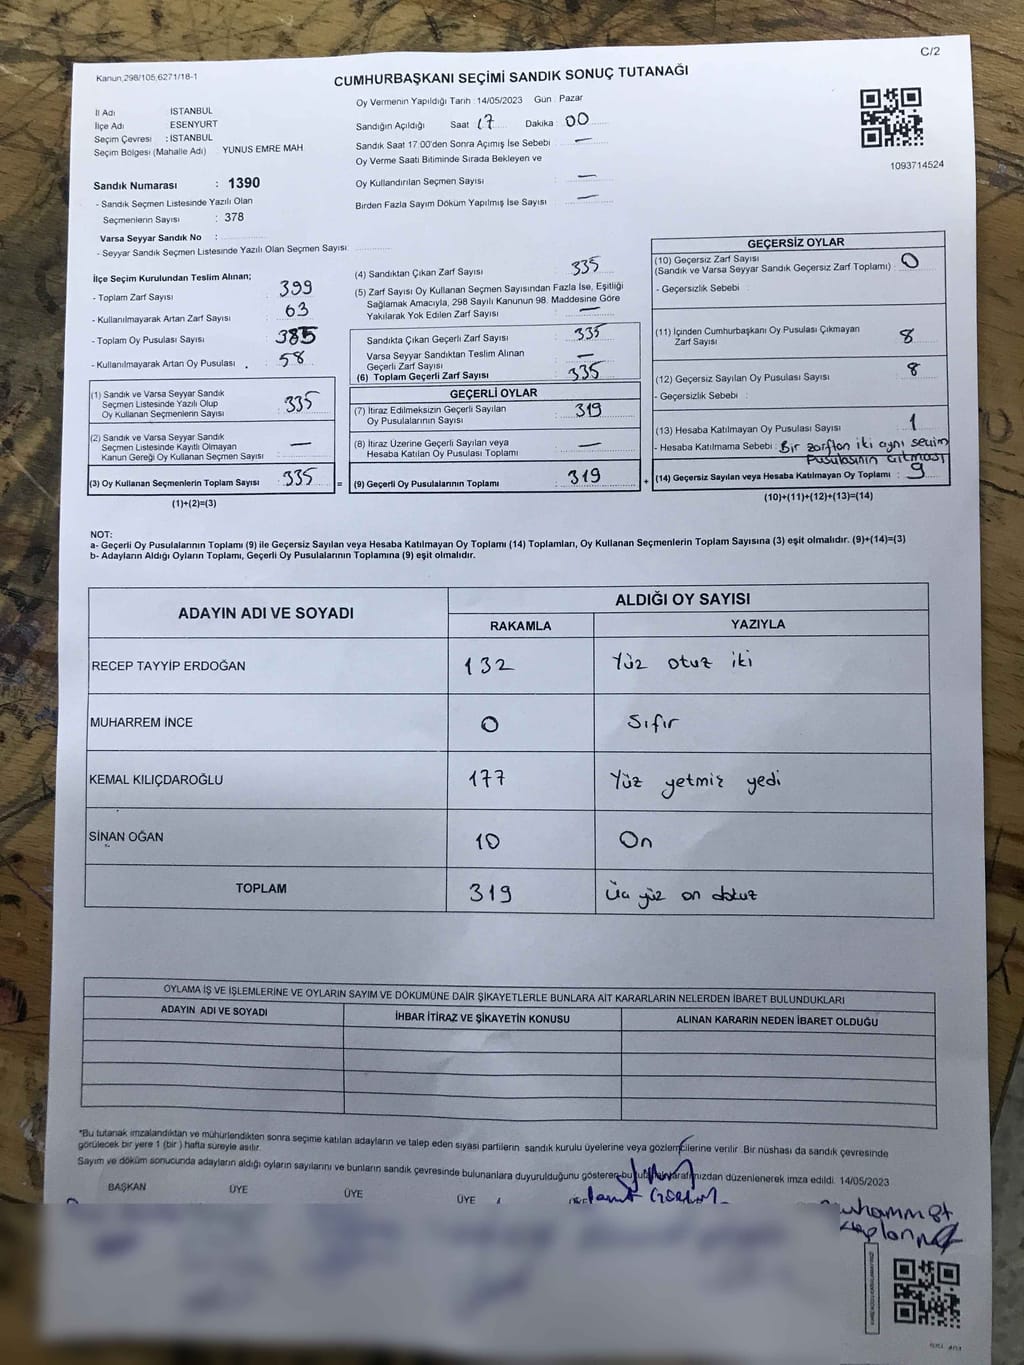 C/2
Kanun,298/105,6271/18-1
CUMHURBAŞKANI SEÇİMİ SANDIK SONUÇ TUTANAĞI
İl Adı İSTANBUL
İlçe Adı ESENYURT
Seçim Çevresi : İSTANBUL
Seçim Bölgesi (Mahalle Adı) YUNUS EMRE MAH
Sandık Numarası : 1390
- Sandık Seçmen Listesinde Yazılı Olan
Seçmenlerin Sayısı : 378
Varsa Seyyar Sandık No :
- Seyyar Sandık Seçmen Listesinde Yazılı Olan Seçmen Sayısı:
Oy Vermenin Yapıldığı Tarih : 14/05/2023 Gün : Pazar
Sandığın Açıldığı Saat 17 Dakika : 00
Sandık Saat 17.00'den Sonra Açımış İse Sebebi : —
Oy Verme Saati Bitiminde Sırada Bekleyen ve
Oy Kullandırılan Seçmen Sayısı : —
Birden Fazla Sayım Döküm Yapılmış İse Sayısı : —
1093714524
İlçe Seçim Kurulundan Teslim Alınan;
- Toplam Zarf Sayısı : 399
- Kullanılmayarak Artan Zarf Sayısı : 63
- Toplam Oy Pusulası Sayısı : 385
- Kullanılmayarak Artan Oy Pusulası : 58
(1) Sandık ve Varsa Seyyar Sandık
Seçmen Listesinde Yazılı Olup
Oy Kullanan Seçmenlerin Sayısı : 335
(2) Sandık ve Varsa Seyyar Sandık
Seçmen Listesinde Kayıtlı Olmayan
Kanun Gereği Oy Kullanan Seçmen Sayısı : —
(3) Oy Kullanan Seçmenlerin Toplam Sayısı : 335 =
(1)+(2)=(3)
(4) Sandıktan Çıkan Zarf Sayısı : 335
(5) Zarf Sayısı Oy Kullanan Seçmen Sayısından Fazla İse, Eşitliği
Sağlamak Amacıyla, 298 Sayılı Kanunun 98. Maddesine Göre
Yakılarak Yok Edilen Zarf Sayısı : —
Sandıkta Çıkan Geçerli Zarf Sayısı : 335
Varsa Seyyar Sandıktan Teslim Alınan
Geçerli Zarf Sayısı : —
(6) Toplam Geçerli Zarf Sayısı : 335
GEÇERLİ OYLAR
(7) İtiraz Edilmeksizin Geçerli Sayılan
Oy Pusulalarının Sayısı : 319
(8) İtiraz Üzerine Geçerli Sayılan veya
Hesaba Katılan Oy Pusulası Toplamı : —
(9) Geçerli Oy Pusulalarının Toplamı : 319 +
GEÇERSİZ OYLAR
(10) Geçersiz Zarf Sayısı
(Sandık ve Varsa Seyyar Sandık Geçersiz Zarf Toplamı) : 0
- Geçersizlik Sebebi :
(11) İçinden Cumhurbaşkanı Oy Pusulası Çıkmayan
Zarf Sayısı : 8
(12) Geçersiz Sayılan Oy Pusulası Sayısı : 8
- Geçersizlik Sebebi :
(13) Hesaba Katılmayan Oy Pusulası Sayısı : 1
- Hesaba Katılmama Sebebi : Bir zarftan iki aynı seçim
pusulasının çıkması
(14) Geçersiz Sayılan veya Hesaba Katılmayan Oy Toplamı : 9
(10)+(11)+(12)+(13)=(14)
NOT:
a- Geçerli Oy Pusulalarının Toplamı (9) ile Geçersiz Sayılan veya Hesaba Katılmayan Oy Toplamı (14) Toplamları, Oy Kullanan Seçmenlerin Toplam Sayısına (3) eşit olmalıdır. (9)+(14)=(3)
b- Adayların Aldığı Oyların Toplamı, Geçerli Oy Pusulalarının Toplamına (9) eşit olmalıdır.
ADAYIN ADI VE SOYADI ALDIĞI OY SAYISI
RAKAMLA YAZIYLA
RECEP TAYYİP ERDOĞAN 132 Yüz otuz iki
MUHARREM İNCE 0 Sıfır
KEMAL KILIÇDAROĞLU 177 Yüz yetmiş yedi
SİNAN OĞAN 10 On
TOPLAM 319 Üç yüz on dokuz
OYLAMA İŞ VE İŞLEMLERİNE VE OYLARIN SAYIM VE DÖKÜMÜNE DAİR ŞİKAYETLERLE BUNLARA AİT KARARLARIN NELERDEN İBARET BULUNDUKLARI
ADAYIN ADI VE SOYADI İHBAR İTİRAZ VE ŞİKAYETİN KONUSU ALINAN KARARIN NEDEN İBARET OLDUĞU
*Bu tutanak imzalandıktan ve mühürlendikten sonra seçime katılan adayların ve talep eden siyasi partilerin sandık kurulu üyelerine veya gözlemcilerine verilir. Bir nüshası da sandık çevresinde
görülecek bir yere 1 (bir ) hafta süreyle asılır.
Sayım ve döküm sonucunda adayların aldığı oyların sayılarını ve bunların sandık çevresinde bulunanlara duyurulduğunu gösteren bu tutanak tarafımızdan düzenlenerek imza edildi. 14/05/2023
BAŞKAN ÜYE ÜYE ÜYE